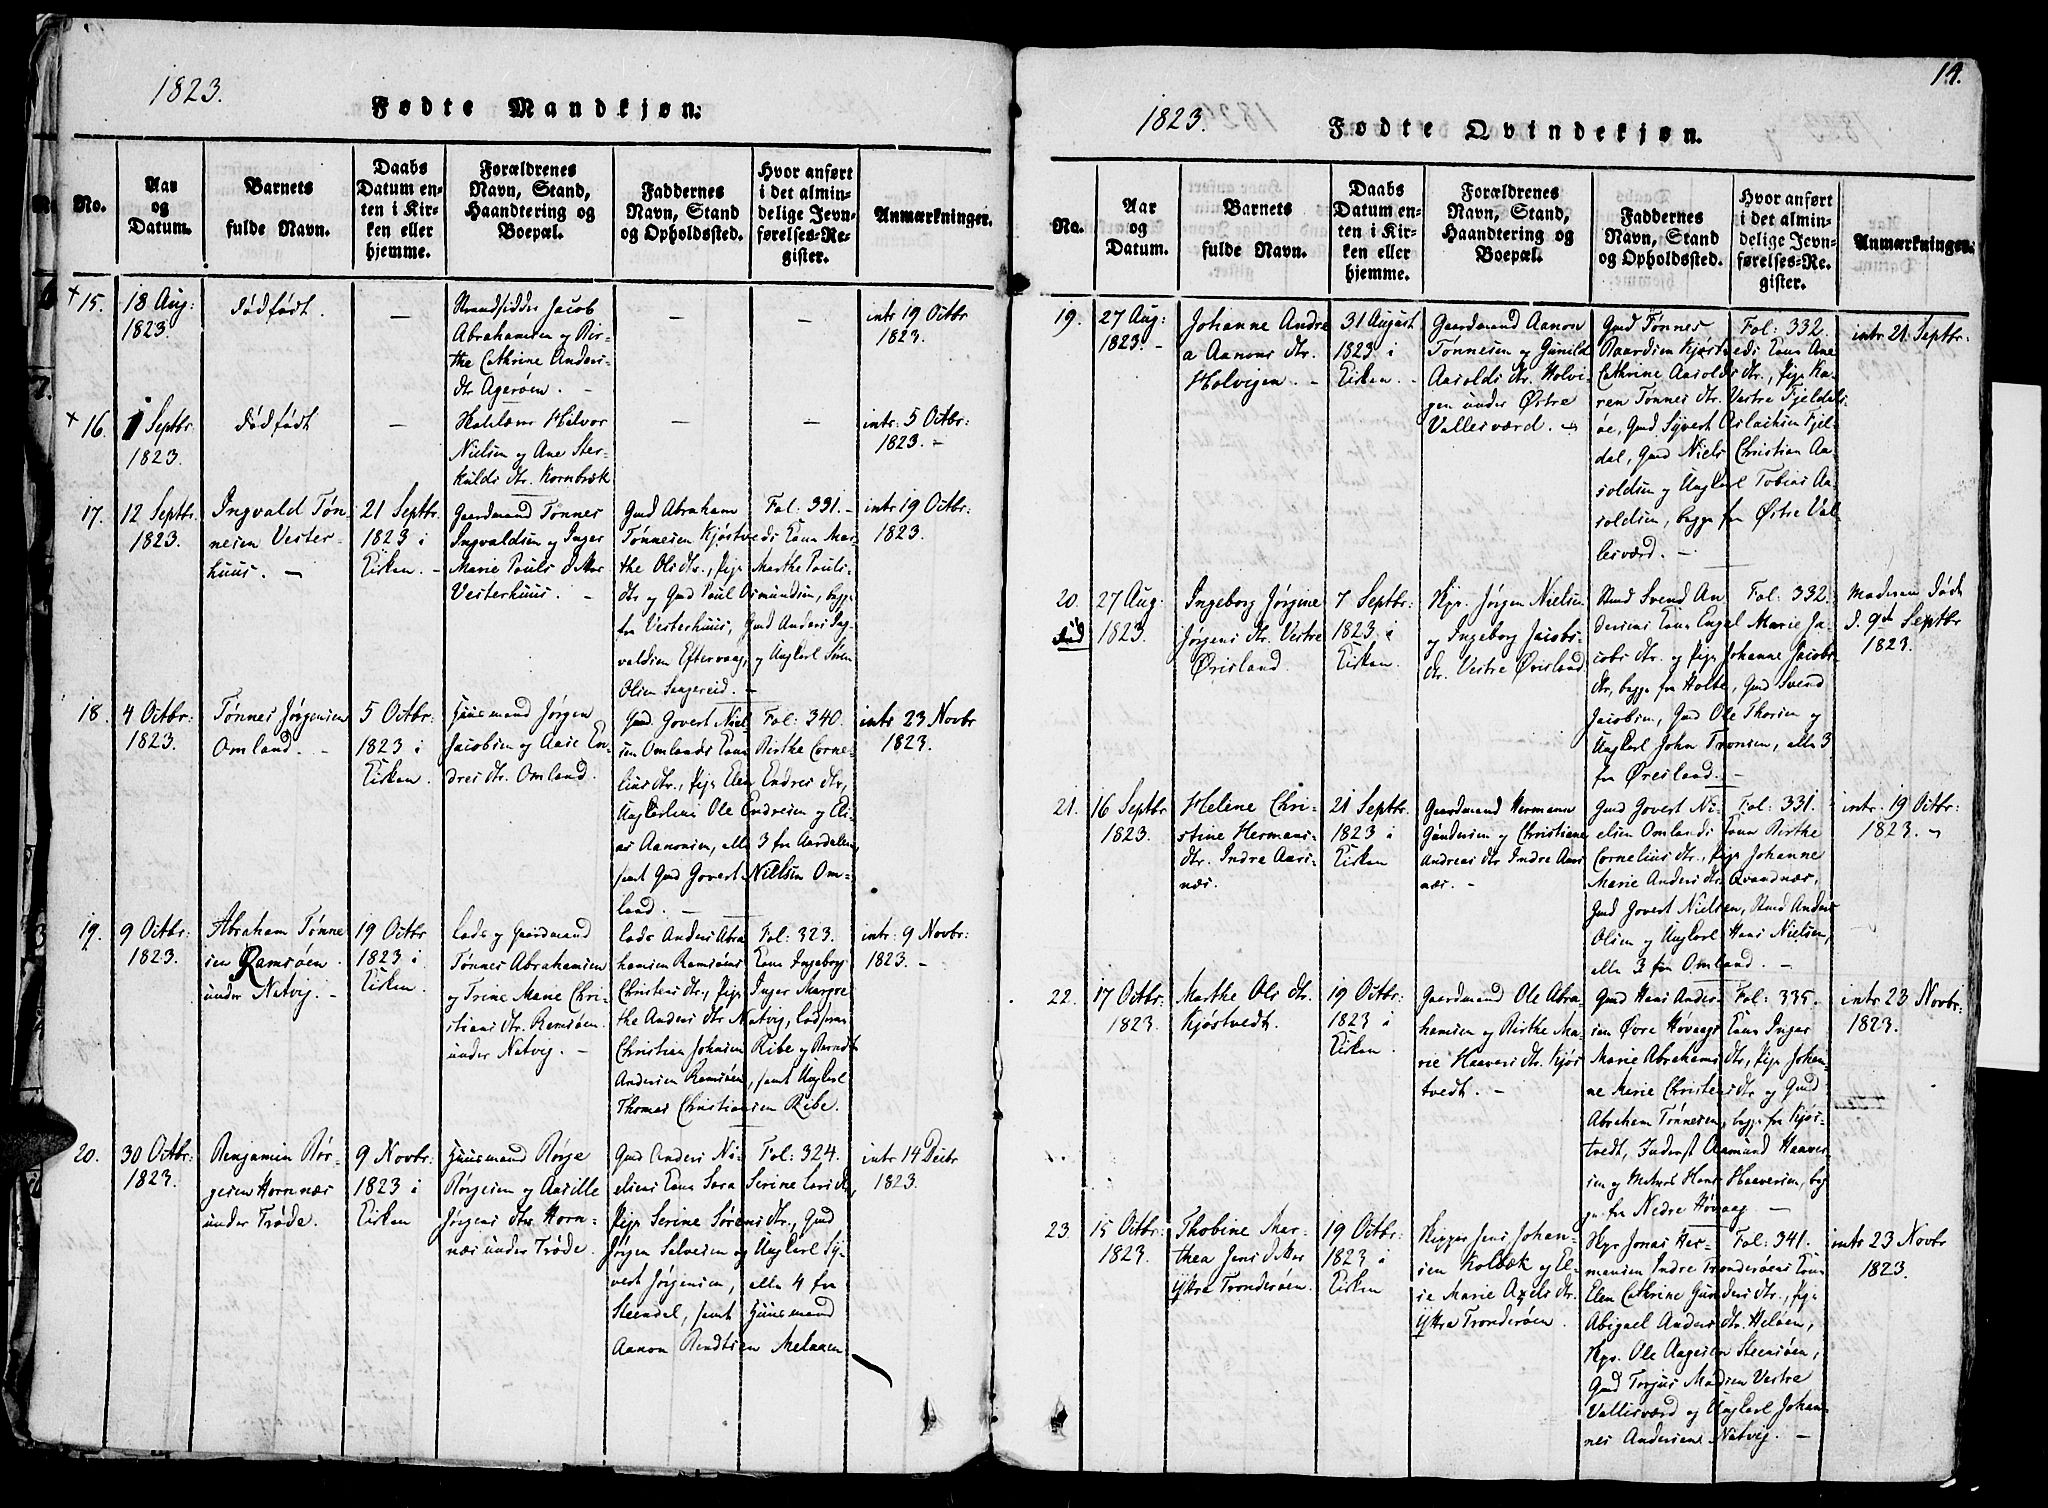 1823.
Fødte Mandkjøn.
No.
Aar
og
Datum.
Barnets
fulde Navn.
Daabs
Datum en-
ten i Kir-
ken eller
hjemme.
Forældrenes
Navn, Stand,
Haandtering og
Boepæl.
Faddernes
Navn, Stand
og Opholdssted.
Hvor anført
i det almin-
delige Jevn-
førelses-Re-
gister.
Anmærkninger.
+ 15.
18 Aug:
1823.
dødfødt.
—
Strandsidder Jacob
Abrahamsen og Bir-
the Cathrine Anders-
dtr Agerøen. –
—
—
intr 19 Octbr
1823.
+ 16.
1 Septbr
1823.
dødfødt
—
Halvor
Nielsen og Ane Ster-
kulds dtr. Kornbræk
—
—
intr: 5 Octbr:
1823. –
17.
12 Septbr.
1823.
Ingvald Tøn-
nesen Vester-
huus. –
21 Septbr.
1823 i
Kirken. –
Gaardmand Tønnes
Ingvaldsen og Inger
Marie Pouls datter
Vesterhuus. –
Gmd Abraham
Tønnesen Kjøstveds Kone Mar-
the Ols dtr., pige Marthe Pouls-
dtr og Gmd Poul Osmundsen, begge
fra Vesterhuus, Gmd Anders Ing-
valdsen Eftervaag, og Ungkarl Søren
Olsen Saagereid. –
Fol: 331. –
intr 19 Octbr:
1823.
18.
4 Octbr:
1823.
Tønnes Jørgensen
Omland. –
5 Octbr:
1823 i
Kirken.
Huusmand Jørgen
Jacobsen og Aase En-
dres dtr. Omland.
Gmd. Govert Niel-
sen Omlands Kone Birthe Corne-
lius dtr., pige Elen Endres dtr,
Ungkarlene Ole Endresen og Eli-
as Aanonsen, alle 3 fra Aardalen,
samt Gmd Govert Nielsen Om-
land. –
Fol: 340.
intr 23 Novbr
1823.
19.
9 Octbr:
1823.
Abraham Tønne
sen Ramsøen
under Natvig. –
19 Octbr
1823 i
Kirken.
Lods og Gaardmand
Tønnes Abrahamsen
og Trine Marie Chri-
stians dtr. Ramsøen
under Natvig. –
Lods Anders Abra
hamsen Ramsøens Kone Ingeborg
Christens dtr., pige Inger Margre
the Anders dtr Natvig,
Christian Johnsen Ribe og Berndt
Andersen Ramsøen, samt Ungkarl
Thomas Christiansen Ribe.
Fol: 323.
intr: 9 Novbr:
1823. –
20.
30 Octbr.
1823.
Benjamin Bør-
gesen Hornnæs
under Trøde.
9 Novbr:
1823 i
Kirken
Huusmand Børge
Børgesen og Aasille
Jørgens dtr. Horn-
næs under Trøde.
Gmd Anders Ni-
elsens Kone Sara Serine Lars dtr,
pige Serine Sørens dtr., Gmd
Jørgen Salvesen og Ungkarl Sy-
vert Jørgensen, alle 4 fra
Steendal, samt Huusmand
Aanon Bendtsen Melaaen.
Fol: 324.
intr 14 Decbr
1823.
14.
1823.
Fødte Qvindekjøn.
No.
Aar
og
Datum.
Barnets
fulde Navn.
Daabs
Datum en-
ten i Kir-
ken eller
hjemme.
Forældrenes
Navn, Stand,
Haandtering og
Boepæl.
Faddernes
Navn, Stand
og Opholdssted.
Hvor anført
i det almin-
delige Jevn-
førelses-Re-
gister.
Anmærkninger.
19.
27 Aug:
1823. –
Johanne Andre
a Aanons dtr.
Holvigen. –
31 August
1823 i
Kirken. –
Gaardmand Aanon
Tønnesen og Gunild
Aasolds dtr. Holvi-
gen under Østre
Vallesværd. –
Gmd Tønnes
Baardsen Kjøstveds Kone Ane
Cathrine Aasolds dtr., pige Ka-
ren Tønnes dtr. Vestre Fjeldal-
øe, Gmd Syvert Aslachsen Fjel-
dal, Gmd Niels Christian Aa-
soldsen og Ungkarl Tobias Aa-
soldsen, begge fra Østre Val-
lesværd. –
Fol: 332.
intr 21 Septbr:
20.
27 Aug:
1823.
Ingeborg Jørgine
Jørgens dtr. Vestre
Ørisland.
7 Septbr:
1823 i
Kirken.
Kpr. Jørgen Nielsen
og Ingeborg Jacobs-
dtr. Vestre Øvisland
Svend An
dersens Kone Engel Marie Ja-
cobs dtr. og pige Johanne Jacobs-
dtr., begge fra Holte, Gmd Svend
Jacobsen, Gmd Ole Thorsen og
Ungkarl John Tronsen, alle 3
fra Øresland. –
Fol: 332.
Moderen død
d. 9de Septbr
1823.
21.
16 Septbr
1823.
Helene Chri-
stine Hermans-
dtr. Indre Aars-
næs.
21 Septbr.
1823 i
Kirken
Gaardmand Hermann
Gundersen og Christiane
Andreas dtr Indre Aars
næs. –
Gmd Govert Ni-
elsen Omlands Kone Birthe
Cornelius dtr., pige Johanne
Marie Anders dtr. Qvandnæs,
Gmd Govert Nielsen, Smd Anders
Olsen og Ungkarl Hans Nielsen,
alle 3 fra Omland. –
Fol: 331.
intr. 19 Octbr:
1823. –
22.
17 Octbr:
1823.
Marthe Ols dtr.
Kjøstvedt.
19 Octbr:
1823 i
Kirken.
Gaardmand Ole Abra-
hamsen og Birthe Ma-
rie Haavers dtr. Kjøs
tvedt. –
Gmd Hans Anders-
sen Øvre Høvaags Kone Inger
Marie Abrahams dtr, pige Johan-
ne Marie Christens dtr og Gmd
Abraham Tønnesen, begge fra Kjøs-
tvedt, Inderst Aamund Haaver-
sen og Hans Haaversen, beg
ge fra Nedre Høvaag –
Fol: 335.
intr 23 Novbr:
1823.
23.
15 Octbr:
1823.
Thobine Mar-
thea Jens datter
Ytre Tronderøen.
19 Octbr:
1823 i
Kirken
Skipper Jens Johan-
sen Kolbæk og El-
se Marie Axels dtr.
Ytre Tronderøen.
Kpr Jonas Her-
mansen Indre Tronderøens Kone
Elen Cathrine Gunders dtr., pige
Abigael Anders dtr. Heløen,
Kpr. Ole Aagesen Steensøen,
Gmd Torjus Madsen Vestre
Vallesværd og Ungkarl Johan-
nes Andersen Natvig. –
Fol: 341.
intr 23 Novbr
1823.